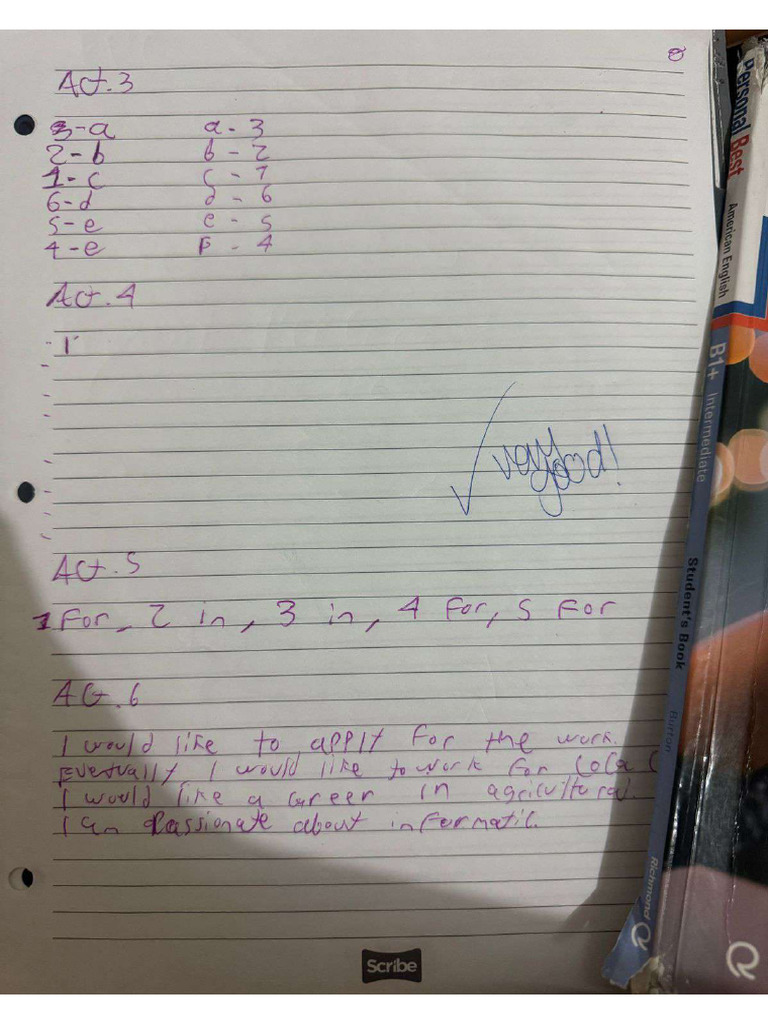 Act.3
3-a a - 3
2-b b - 2
1-c c - 1
6-d d - 6
5-e e - 5
4-e F - 4
Act.4
- 1
very
good!
Act.5
1 For, 2 in, 3 in, 4 for, 5 For
Act.6
I would like to apply for the work.
Eventually I would like to work for CoCa C
I would like a career in agricultural.
I am passionate about informatic.
Scribe
Personal Best
American English
B1+ Intermediate
Student's Book
Burton
Richmond